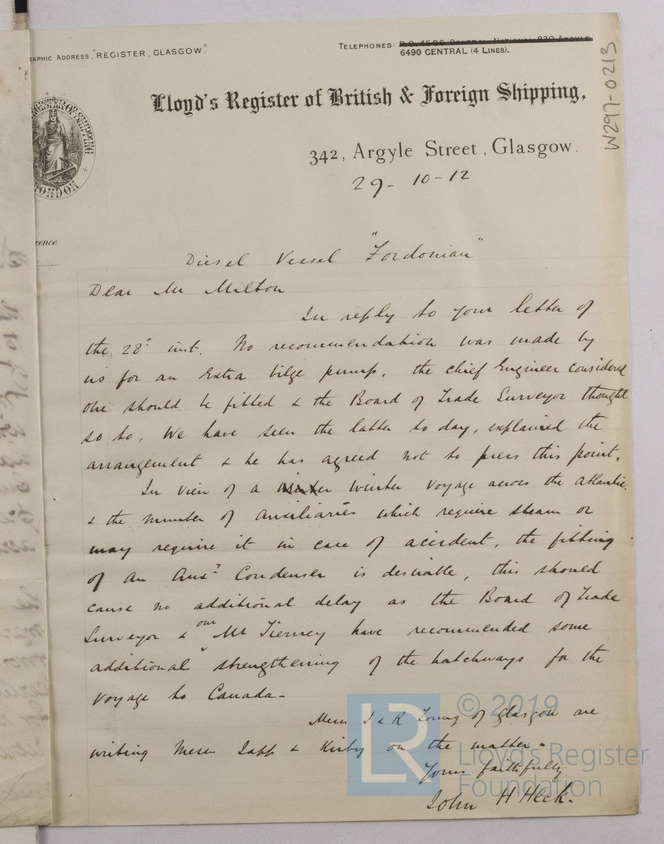 RAPHIC ADDRESS, "REGISTER, GLASGOW."
TELEPHONES: P.O. 4506 CENTRAL NATIONAL 830 ARGYLE
6490 CENTRAL (4 LINES).
W297-0213
Lloyd's Register of British & Foreign Shipping,
342, Argyle Street, Glasgow.
29-10-12
REGISTER OF SHIPPING
LONDON
rence
Diesel Vessel "Fordonian"
Dear Mr Milton
In reply to your letter of
the 28th inst. No recommendation was made by
us for an extra bilge pump, the chief Engineer considered
one should be fitted & the Board of Trade Surveyor thought
so to. We have seen the latter to day, explained the
arrangement & he has agreed not to press this point.
In view of a winter voyage across the atlantic
& the number of auxiliaries which require steam or
may require it in case of accident, the fitting
of an Auxy Condenser is desirable, this should
cause no additional delay as the Board of Trade
Surveyor & our Mr Tierney have recommended some
additional strengthening of the hatchways for the
voyage to Canada-
Messrs J & R Young of Glasgow are
writing Messrs & Kirby on the matter.
Yours faithfully
John H Heck.
© 2019
LR
Lloyd's Register
Foundation